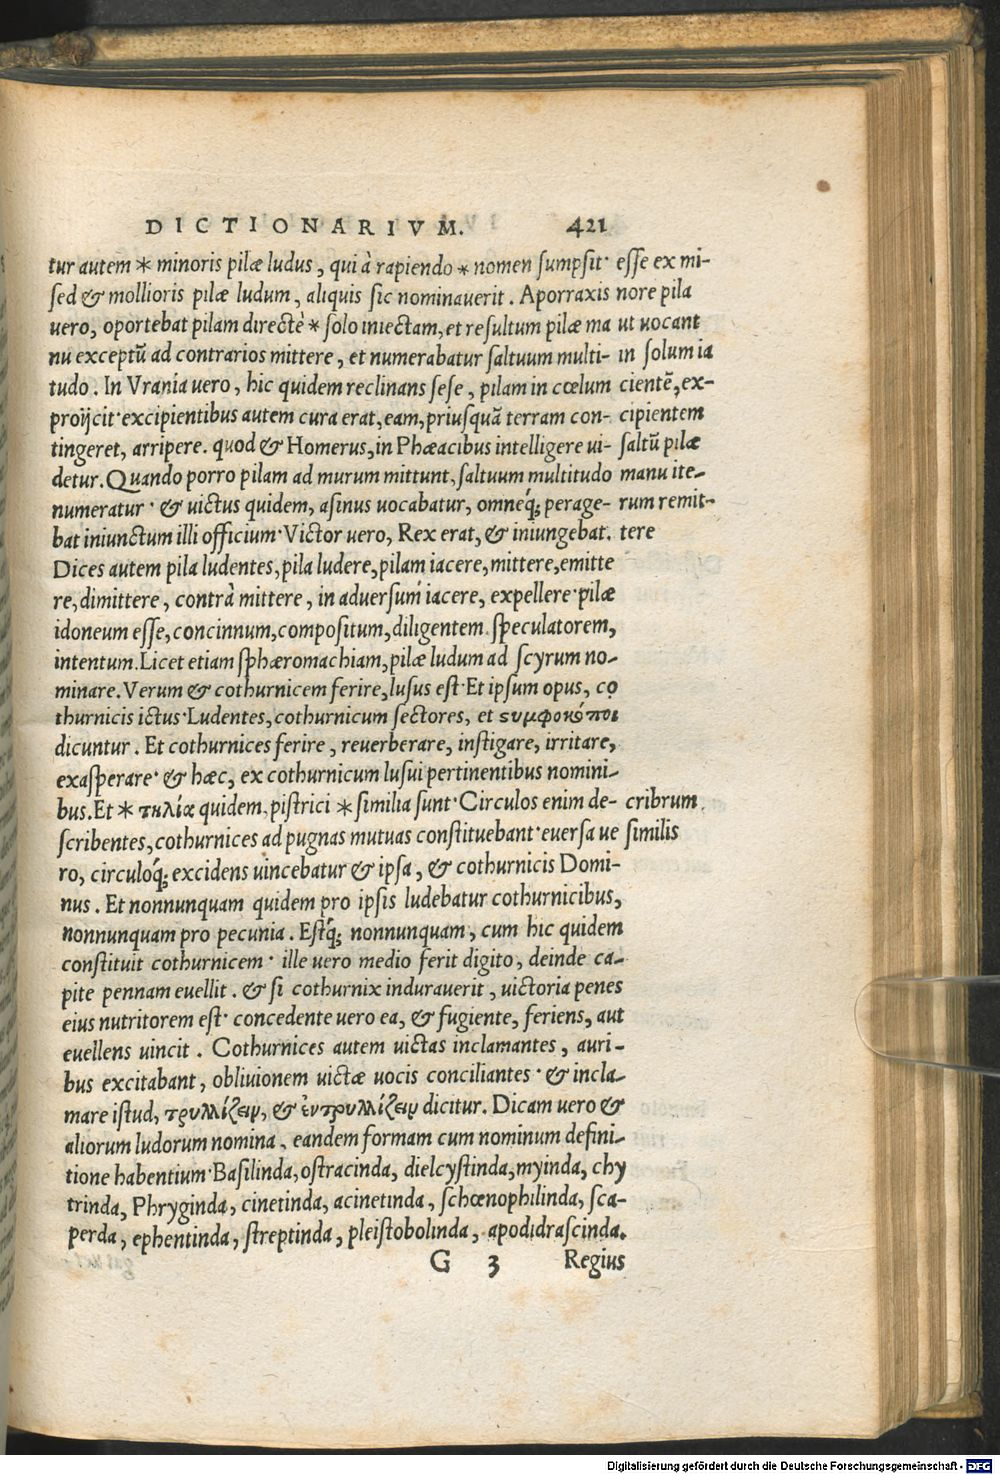 DICTIONARIVM. 421
tur autem * minoris pilæ ludus, qui à rapiendo * nomen sumpsit· esse ex mi-
sed & mollioris pilæ ludum, aliquis sic nominauerit. Aporraxis nore pila
uero, oportebat pilam directè * solo iniectam, et resultum pilæ ma ut uocant
nu exceptũ ad contrarios mittere, et numerabatur saltuum multi- in solum ia
tudo. In Vrania uero, hic quidem reclinans sese, pilam in cœlum cientẽ, ex-
proijcit· excipientibus autem cura erat, eam, priusquã terram con- cipientem
tingeret, arripere. quod & Homerus, in Phæacibus intelligere ui- saltũ pilæ
detur. Quando porro pilam ad murum mittunt, saltuum multitudo manu ite-
numeratur· & uictus quidem, asinus uocabatur, omneq́; perage- rum remit-
bat iniunctum illi officium· Victor uero, Rex erat, & iniungebat. tere
Dices autem pila ludentes, pila ludere, pilam iacere, mittere, emitte
re, dimittere, contrà mittere, in aduersum iacere, expellere· pilæ
idoneum esse, concinnum, compositum, diligentem speculatorem,
intentum. Licet etiam sphæromachiam, pilæ ludum ad scyrum no-
minare. Verum & cothurnicem ferire, lusus est· Et ipsum opus, co
thurnicis ictus· Ludentes, cothurnicum sectores, et ςυμφοκόποι
dicuntur. Et cothurnices ferire, reuerberare, instigare, irritare,
exasperare· & hæc, ex cothurnicum lusui pertinentibus nomini-
bus. Et * τηλία quidem, pistrici * similia sunt· Circulos enim de- cribrum
scribentes, cothurnices ad pugnas mutuas constituebant· euersa ue similis
ro, circuloq́; excidens uincebatur & ipsa, & cothurnicis Domi-
nus. Et nonnunquam quidem pro ipsis ludebatur cothurnicibus,
nonnunquam pro pecunia. Estq́; nonnunquam, cum hic quidem
constituit cothurnicem· ille uero medio ferit digito, deinde ca-
pite pennam euellit. & si cothurnix indurauerit, uictoria penes
eius nutritorem est· concedente uero ea, & fugiente, feriens, aut
euellens uincit. Cothurnices autem uictas inclamantes, auri-
bus excitabant, obliuionem uictæ uocis conciliantes· & incla-
mare istud, τρυλλίζειν, & ἐντρυλλίζειν dicitur. Dicam uero &
aliorum ludorum nomina, eandem formam cum nominum defini-
tione habentium· Basilinda, ostracinda, dielcystinda, myinda, chy
trinda, Phryginda, cinetinda, acinetinda, schœnophilinda, sca-
perda, ephentinda, streptinda, pleistobolinda, apodidrascinda.
G 3 Regius
Digitalisierung gefördert durch die Deutsche Forschungsgemeinschaft - DFG